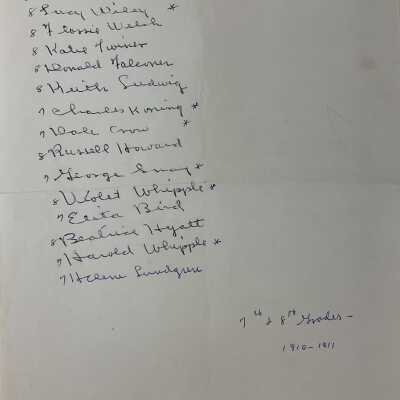 8 Lucy Wiley *
8 Flossie Welch
8 Katie Twiner
8 Donald Falconer
8 Keith Ludwig
7 Charles Koning *
7 Dale Crow *
8 Russell Howard
7 George *
8 Violet Whipple *
7 Erita Bird
8 Beatrice Hyatt
7 Harold Whipple *
7 Helene Lundgren
7th & 8th Grades -
1910-1911